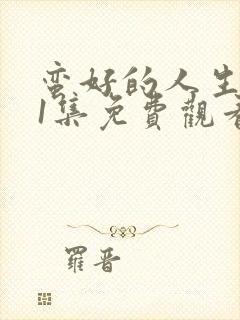 蛮好的人生
1集免費觀看
羅晋